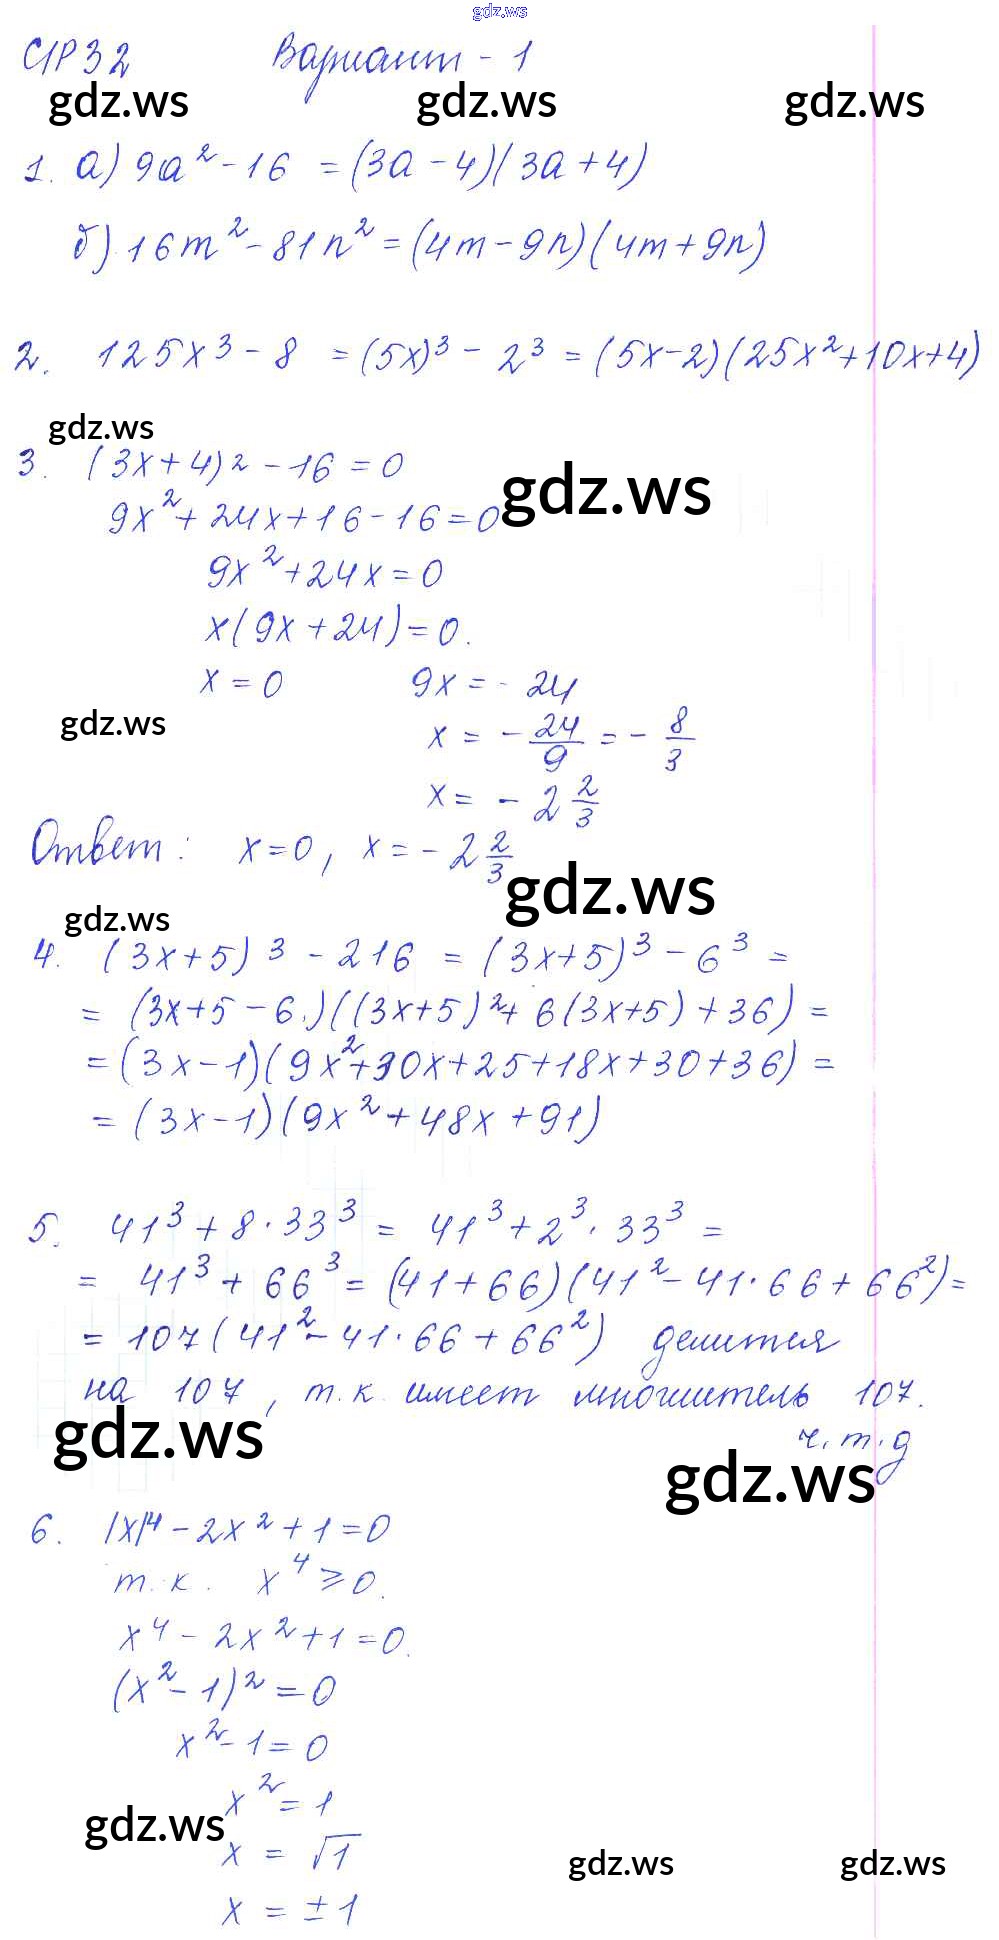 gdz.ws
СР32 Вариант - 1
gdz.ws gdz.ws gdz.ws
1. а) 9a² - 16 = (3a - 4)(3a + 4)
б) 16m² - 81n² = (4m - 9n)(4m + 9n)
2. 125x³ - 8 = (5x)³ - 2³ = (5x - 2)(25x² + 10x + 4)
gdz.ws
3. (3x + 4)² - 16 = 0
gdz.ws
9x² + 24x + 16 - 16 = 0
9x² + 24x = 0
x(9x + 24) = 0.
x = 0 9x = - 24
gdz.ws
x = - 24/9 = - 8/3
x = - 2 2/3
Ответ: x = 0, x = - 2 2/3
gdz.ws
gdz.ws
4. (3x + 5)³ - 216 = (3x + 5)³ - 6³ =
= (3x + 5 - 6)((3x + 5)² + 6(3x + 5) + 36) =
= (3x - 1)(9x² + 30x + 25 + 18x + 30 + 36) =
= (3x - 1)(9x² + 48x + 91)
5. 41³ + 8 · 33³ = 41³ + 2³ · 33³ =
= 41³ + 66³ = (41 + 66)(41² - 41 · 66 + 66²) =
= 107(41² - 41 · 66 + 66²) делится
на 107, т.к. имеет множитель 107.
gdz.ws
ч.т.д
gdz.ws
6. |x|⁴ - 2x² + 1 = 0
т.к. x⁴ ≥ 0.
x⁴ - 2x² + 1 = 0.
(x² - 1)² = 0
x² - 1 = 0
x² = 1
gdz.ws
x = √1
gdz.ws gdz.ws
x = ± 1